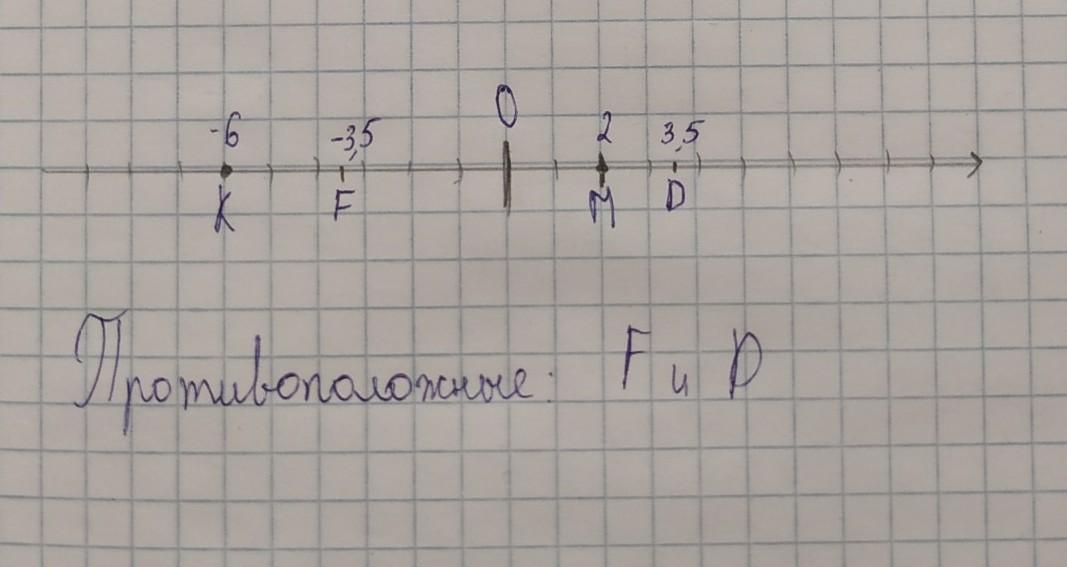 0
-6 -3,5 2 3,5
K F M D
Противоположные: F и D